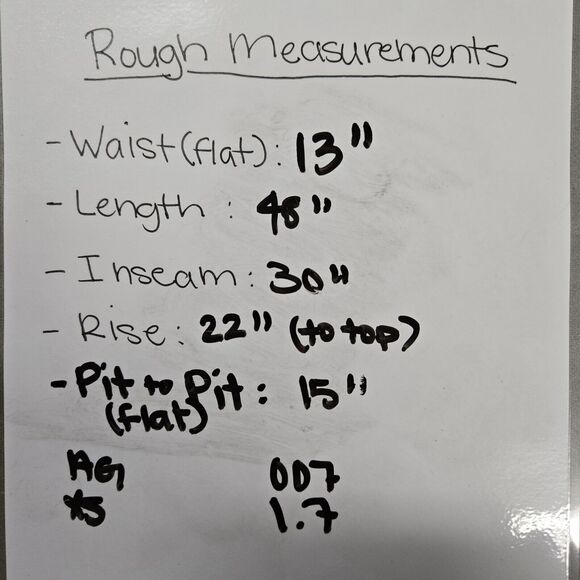 Rough Measurements
- Waist (flat): 13"
- Length: 48"
- Inseam: 30"
- Rise: 22" (to top)
- Pit to Pit: 15"
(flat)
AG 007
XS 1.7